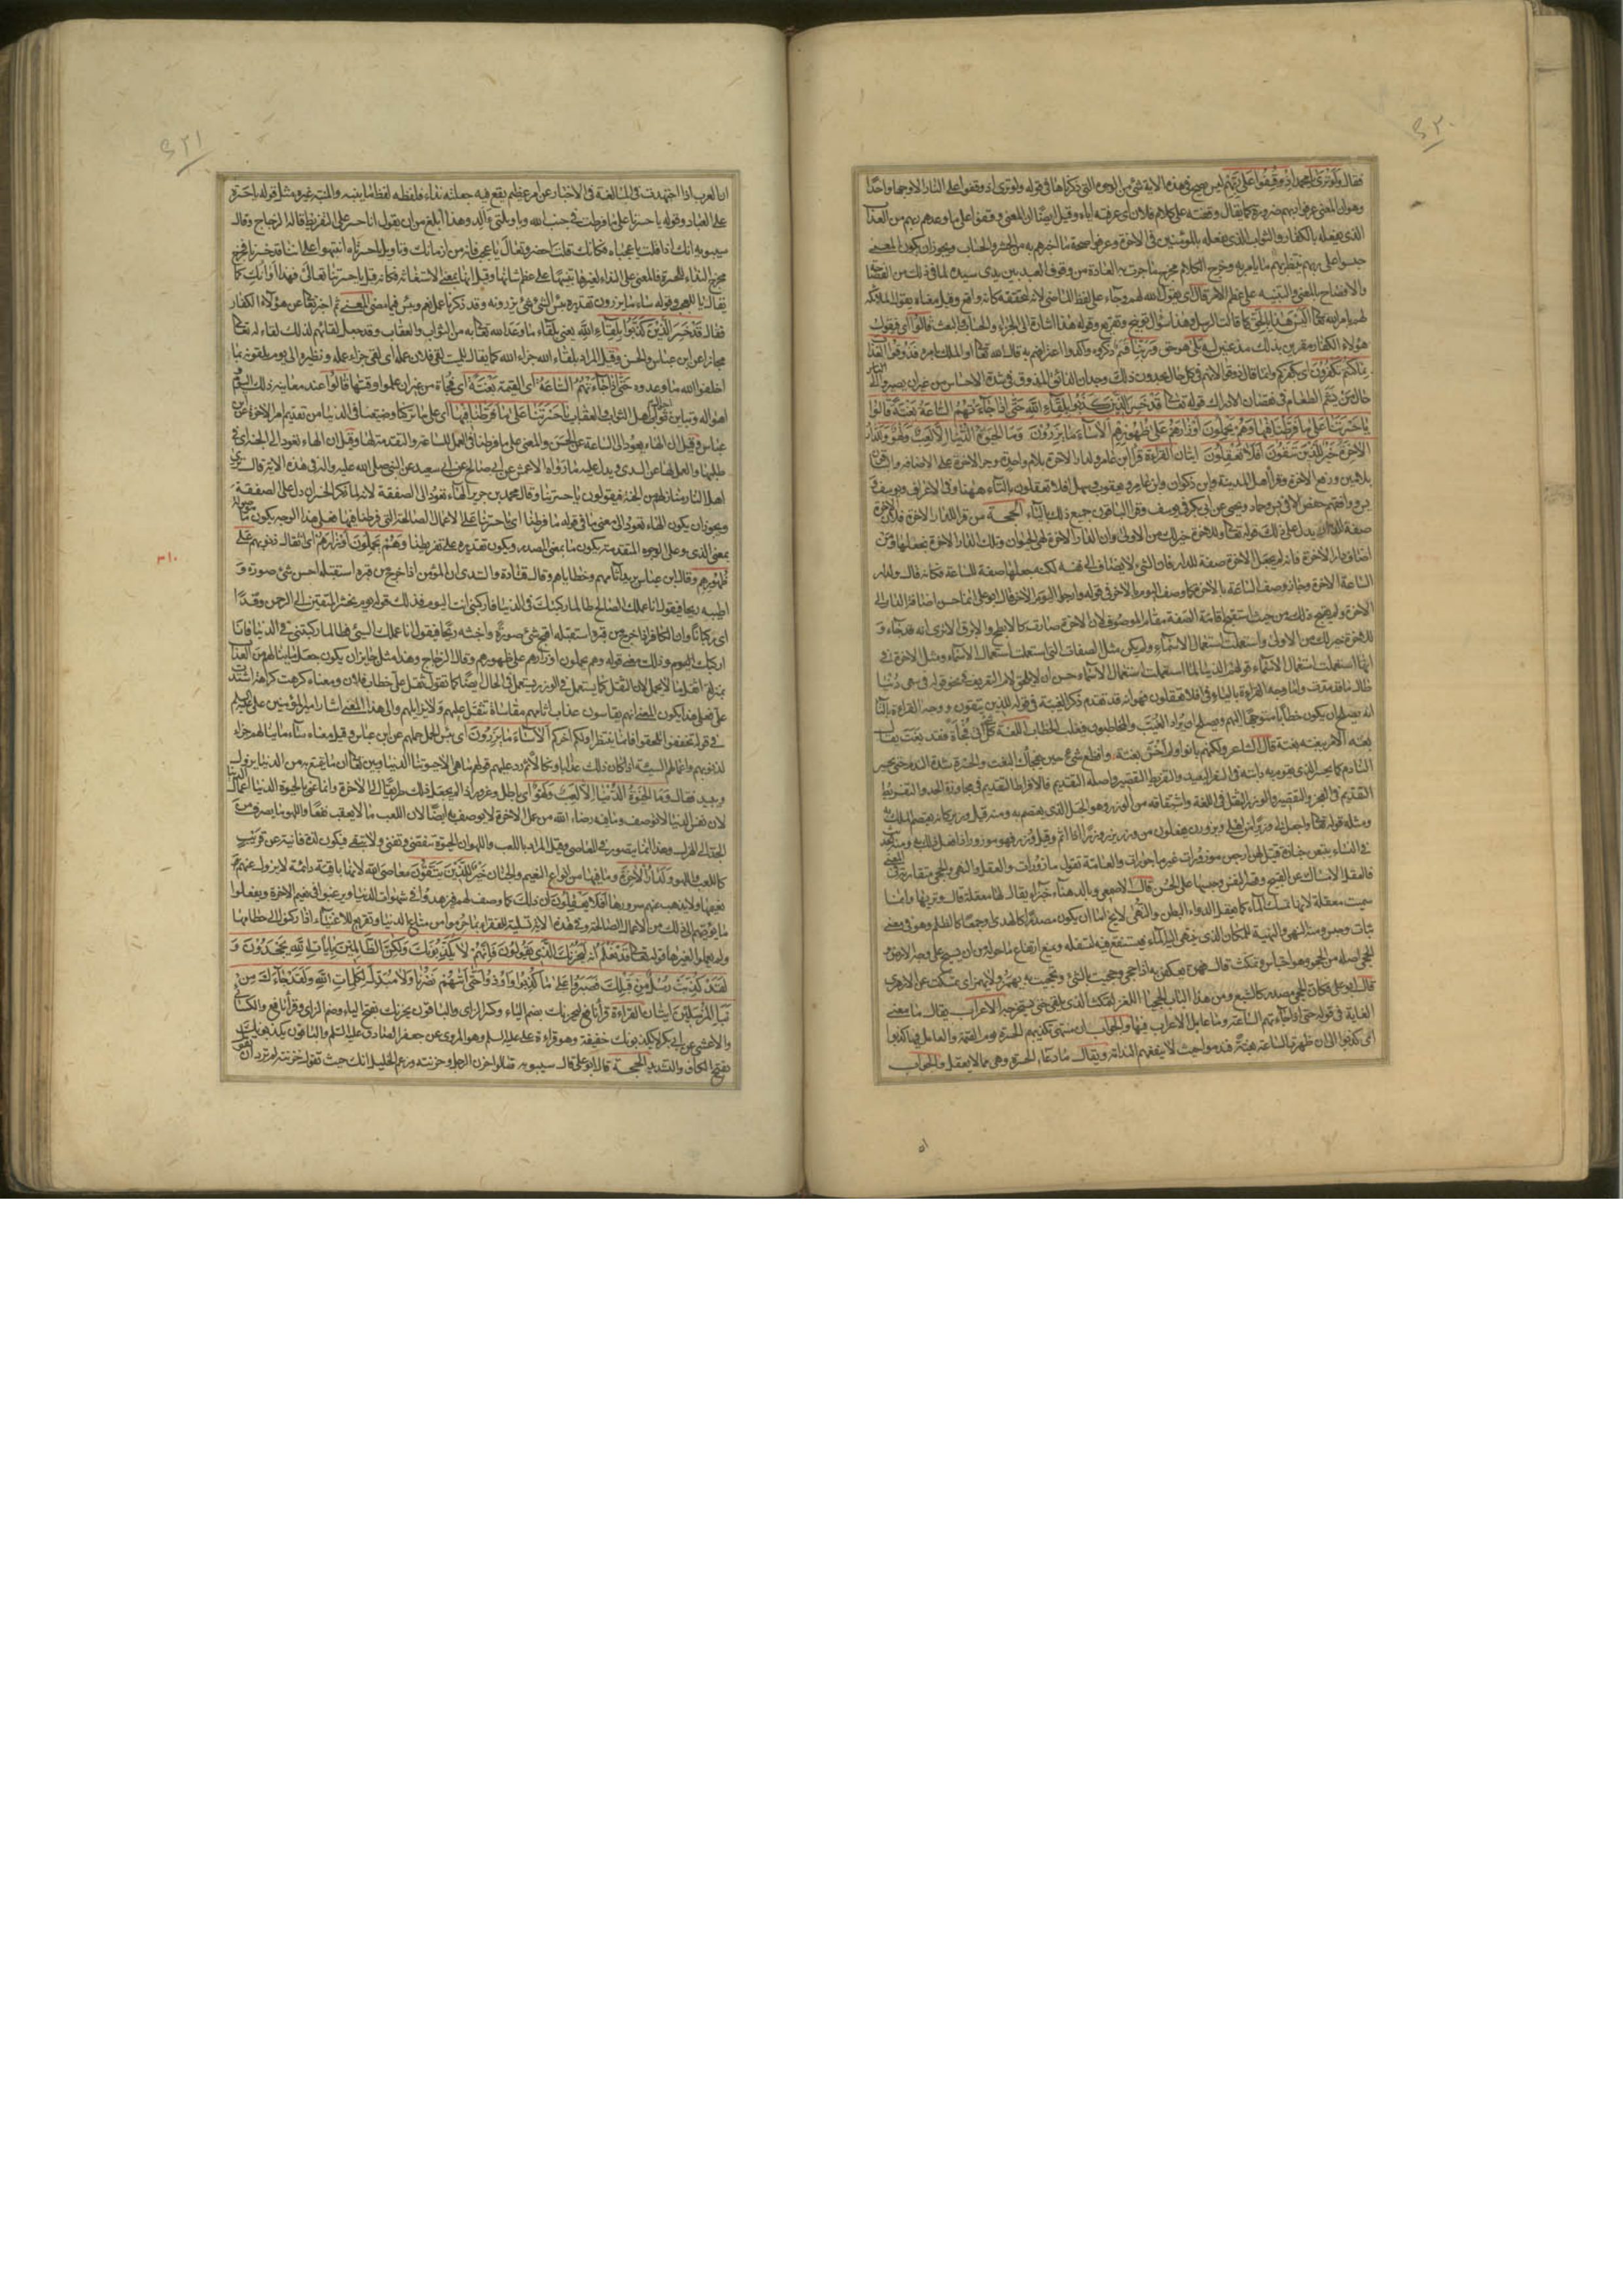 ۶۲۰
فقال ولو ترى يا محمد اذ وقفوا على ربهم ليس يصح في هذه الاية شئ من الوجوه التي ذكرناها في قوله ولو ترى اذ وقفوا على النار الا وجها واحدا
وهو ان المعنى عرفوا ربهم ضرورة كما يقال وقفته على كلام فلان اي عرفته اياه وقيل ايضا ان المعنى وقفوا على ما وعدهم ربهم من العذاب
الذي يفعله بالكفار والثواب الذي يفعله بالمؤمنين في الاخرة وعرفوا صحة ما اخبرهم به من الحشر والحساب ويجوز ان يكون المعنى
حبسوا على ربهم ينتظر بهم ما يامر به وخرج الكلام مخرج ما جرت به العادة من وقوف العبد بين يدي سيده لما في ذلك من الفصاحة
والافصاح بالمعنى والتنبيه على عظم الامر قال اي يقول الله لهم وجاء على لفظ الماضي لانه لتحققه كانه واقع وقيل معناه يقول الملائكة
لهم بامر الله تعالى اليس هذا بالحق كما قالت الرسل وهذا سؤال توبيخ وتقريع وقوله هذا اشارة الى الجزاء والحساب والبعث قالوا اي فيقول
هؤلاء الكفار مقرين بذلك مذعنين له بلى هو حق وربنا قسم ذكروه واكدوا اعترافهم به قال الله تعالى او الملك بامره فذوقوا العذاب
بما كنتم تكفرون اي بكفركم وانما قال ذوقوا لانهم في كل حال يجدون ذلك وجدان الذائق المذوق في شدة الاحساس من غير ان يصيروا الى
حال من يشم الطعام في نقصان الادراك قوله تعالى قد خسر الذين كذبوا بلقاء الله حتى اذا جاءتهم الساعة بغتة قالوا
يا حسرتنا على ما فرطنا فيها وهم يحملون اوزارهم على ظهورهم الا ساء ما يزرون وما الحيوة الدنيا الا لعب ولهو وللدار
الاخرة خير للذين يتقون افلا تعقلون ايتان القراءة قرأ ابن عامر ولدار الاخرة بلام واحدة وجر الاخرة على الاضافة والباقون
بلامين ورفع الاخرة وقرأ اهل المدينة وابن ذكوان وابن عامر ويعقوب وسهل افلا تعقلون بالتاء ههنا وفي الاعراف ويوسف
يس ووافقهم حفص الا في يس وحماد ويحيى عن ابي بكر في يوسف وقرأ الباقون جميع ذلك بالياء الحجة من قرأ وللدار الاخرة فلان الاخرة
صفة للدار يدل على ذلك قوله تعالى وللاخرة خير لك من الاولى وان الدار الاخرة لهي الحيوان وتلك الدار الاخرة نجعلها ومن
اضاف دار الاخرة فانه لم يجعل الاخرة صفة للدار فان الشئ لا يضاف الى نفسه لكنه جعلها صفة للساعة فكانه قال ولدار
الساعة الاخرة وجاز وصف الساعة بالاخرة كما وصف اليوم بالاخر في قوله وارجوا اليوم الاخر قال ابو علي انما حسن اضافة الدار الى
الاخرة ولم يقبح ذلك من حيث استقبح اقامة الصفة مقام الموصوف لان الاخرة صارت كالابطح والابرق الا ترى انه قد جاء و
للاخرة خير لك من الاولى واستعملت استعمال الاسماء ولم يكن مثل الصفات التي استعملت استعمال الاسماء ومثل الاخرة في
انها استعملت استعمال الاسماء قولهم الدنيا لما استعملت استعمال الاسماء حسن ان لا تلحق لام التعريف في نحو قوله في سعي دنيا
طال ما قد مدت واما وجه القراءة بالياء في افلا يعقلون فهو انه قد تقدم ذكر الغيبة في قوله للذين يتقون ووجه القراءة بالتاء
انه يصلح ان يكون خطابا متوجها اليهم ويصلح ان يراد الغيب والمخاطبون فيغلب الخطاب اللغة كل شئ اتى فجأة فقد بغت يقال
بغته الامر يبغته بغتة قال الشاعر ولكنهم بانوا ولم اخش بغتة وافظع شئ حين يفجاك البغت والحسرة شدة الندم حتى يحسر
النادم كما يحسر الذي يقوم به دابته في السفر البعيد والتفريط التقصير واصله التقديم فالافراط التقديم في مجاوزة الحد والتفريط
التقديم في العجز والتقصير والوزر الثقل في اللغة واشتقاقه من الوزر وهو الجبل الذي يعتصم به ومنه قيل وزير كانه يعتصم الملك به
ومثله قوله تعالى واجعل لي وزيرا من اهلي ويزرون يفعلون من وزر يزر وزرا اذا اثم وقيل وزر فهو موزور اذا فعل به ذلك ومنه الحديث
في النساء يتبعن جنازة قتيل لهن ارجعن موزورات غير ماجورات والعامة تقول مازورات والعقل والنهى والحجى متقاربة المعنى
فالعقل الامساك عن القبيح وقصر النفس وحبسها على الحسن قال الاصمعي وبالدهناء خبراء يقال لها معقلة قال وتراها وانما
سميت معقلة لانها تمسك الماء كما يعقل الدواء البطن والنهى لا يخ اما ان يكون مصدرا كالهدى او جمعا كالظلم وهو في معنى
ثبات وحبس ومنه النهي والتنهية للمكان الذي ينتهي اليه الماء فيستنقع فيه لتسفله ويمنع ارتفاع ما حوله من ان يسيح على وجه الارض و
الحجى اصله من الحجو وهو احتباس وتمكث قال فهن يعكفن به اذا حجا وحجيت بالشئ وتحجيت به يهمز ولا يهمز اي تمسكت عن الازهري
قال ابو علي فكان الحجى مصدر كالشبع ومن هذا الباب الحجيا للغز لتمكث الذي يلقى عليه حتى يستخرجها الاعراب يقال ما معنى
الغاية في قوله حتى اذا جاءتهم الساعة وما عامل الاعراب فيها والجواب ان منتهى تكذيبهم الحسرة يوم القيمة والعامل فيها كذبوا
اي كذبوا الى ان ظهرت الساعة بغتة فندموا حيث لا ينفعهم الندامة ويقال ما دعاء الحسرة وهي مما لا يعقل والجواب
۶۲۱
ان العرب اذا اجتهدت في المبالغة في الاخبار عن امر عظيم يقع فيه جعلته نداء فلفظه لفظ ما ينبه والمنبه غيره ومثل قوله يا حسرة
على العباد وقوله يا حسرتا على ما فرطت في جنب الله ويا ويلتى أألد وهذا ابلغ من ان يقول انا حسر على التفريط قال الزجاج وقال
سيبويه انك اذا قلت يا عجباه فكانك قلت احضر وتعال يا عجب فانه من ازمانك وتاويل يا حسرتاه انتبهوا على انا قد خسرنا فخرج
مخرج النداء للحسرة والمعنى على النداء لغيرها تنبيها على عظم شانها وقيل انها بمعنى الاستغاثة فكانه قيل يا حسرتنا تعالى فهذا اوانك كما
يقال يا للعجب وقوله ساء ما يزرون تقديره بئس الشئ شئ يزرونه وقد ذكرنا عمل نعم وبئس فيما مضى المعنى ثم اخبر تعالى عن هؤلاء الكفار
فقال قد خسر الذين كذبوا بلقاء الله يعني بلقاء ما وعد الله تعالى به من الثواب والعقاب وقد جعل لقاءهم لذلك لقاء له تعالى
مجازا عن ابن عباس والحسن وقيل المراد بلقاء الله جزاء الله كما يقال للميت لقي فلان عمله اي لقي جزاء عمله ونظيره الى يوم يلقونه بما
اخلفوا الله ما وعدوه حتى اذا جاءتهم الساعة اي القيمة بغتة اي فجاة من غير ان علموا وقتها قالوا عند معاينة ذلك اليوم و
اهواله وتباين احوال اهل الثواب والعقاب يا حسرتنا على ما فرطنا فيها اي على ما تركنا وضيعنا في الدنيا من تقديم امر الاخرة عن ابن
عباس وقيل ان الهاء يعود الى الساعة عن الحسن والمعنى على ما فرطنا في العمل للساعة والتقدمة لها وقيل ان الهاء تعود الى الجنة اي في
طلبها والعمل لها عن السدي ويدل عليه ما رواه الاعمش عن ابي صالح عن ابي سعيد عن النبي صلى الله عليه واله في هذه الاية قال يرى
اهل النار منازلهم من الجنة فيقولون يا حسرتنا وقال محمد بن جرير الهاء تعود الى الصفقة لانه لما ذكر الخسران دل على الصفقة
ويجوز ان يكون الهاء تعود الى معنى ما في قوله ما فرطنا اي يا حسرتنا على الاعمال الصالحة التي فرطنا فيها فعلى هذا الوجه يكون ما
بمعنى الذي وعلى الوجوه المتقدمة يكون ما بمعنى المصدر ويكون تقديره على تفريطنا وهم يحملون اوزارهم اي اثقال ذنوبهم على
ظهورهم وقال ابن عباس يريد آثامهم وخطاياهم وقال قتادة والسدي ان المؤمن اذا خرج من قبره استقبله احسن شئ صورة و
۳۱۰
اطيبه ريحا فيقول انا عملك الصالح طالما ركبتك في الدنيا فاركبني انت اليوم فذلك قوله يوم نحشر المتقين الى الرحمن وفدا
اي ركبانا وان الكافر اذا خرج من قبره استقبله اقبح شئ صورة واخبثه ريحا فيقول انا عملك السيئ طالما ركبتني في الدنيا فانا
اركبك اليوم وذلك معنى قوله وهم يحملون اوزارهم على ظهورهم وقال الزجاج وهذا مثل جايز ان يكون جعل ما ينالهم من العذاب
بمنزلة اثقل ما يحمل لان الثقل كما يستعمل في الوزن يستعمل في الحال ايضا كما تقول ثقل علي خطاب فلان ومعناه كرهت كراهة اشتدت
علي فعلى هذا يكون المعنى انهم يقاسون عذاب آثامهم مقاساة تثقل عليهم ولا يزايلهم والى هذا المعنى اشار امير المؤمنين علي عليه السلم
في قوله تخففوا تلحقوا فانما ينتظر باولكم اخركم الا ساء ما يزرون اي بئس الحمل حملهم عن ابن عباس وقيل معناه ساء ما ينالهم جزاء
لذنوبهم واعمالهم السيئة اذ كان ذلك عذابا ونكالا ثم رد عليهم قولهم ما هي الا حيوتنا الدنيا وبين تعالى ان ما يتمتع به من الدنيا يزول
ويبيد فقال وما الحيوة الدنيا الا لعب ولهو اي باطل وغرور اذا لم يجعل ذلك طريقا الى الاخرة وانما عنى بالحيوة الدنيا اعمال الدنيا
لان نفس الدنيا لا توصف وما فيه رضاء الله من عمل الاخرة لا يوصف به ايضا لان اللعب ما لا يعقب نفعا واللهو ما يصرف من
الجد الى الهزل وهذا انما يتصور في المعاصي وقيل المراد باللعب واللهو ان الحيوة تنقضي وتفنى ولا تبقى فيكون لذة فانية عن قريب
كاللعب واللهو وللدار الاخرة وما فيها من انواع النعيم والجنان خير للذين يتقون معاصي الله لانها باقية دائمة لا يزول عنهم
نعيمها ولا يذهب عنهم سرورها افلا يعقلون ان ذلك كما وصف لهم فيزهدوا في شهوات الدنيا ويرغبوا في نعيم الاخرة ويفعلوا
ما يؤديهم الى ذلك من الاعمال الصالحة وفي هذه الاية تسلية للفقراء بما حرموا من متاع الدنيا وتقريع للاغنياء اذا ركنوا الى حطامها
ولم يعملوا لغيرها قوله تعالى قد نعلم انه ليحزنك الذي يقولون فانهم لا يكذبونك ولكن الظالمين بايات الله يجحدون و
لقد كذبت رسل من قبلك فصبروا على ما كذبوا واوذوا حتى اتيهم نصرنا ولا مبدل لكلمات الله ولقد جاءك من
نبأ المرسلين ايتان القراءة قرأ نافع ليحزنك بضم الياء وكسر الزاي والباقون يحزنك بفتح الياء وضم الزاي وقرأ نافع والكسائي
والاعشى عن ابي بكر لا يكذبونك خفيفة وهو قراءة علي عليه السلم وهو المروي عن جعفر الصادق عليه السلم والباقون يكذبونك
بفتح الكاف والتشديد الحجة قال ابو علي قال سيبويه قالوا حزن الرجل وحزنته وزعم الخليل انك حيث تقول حزنته لم ترد ان تقول